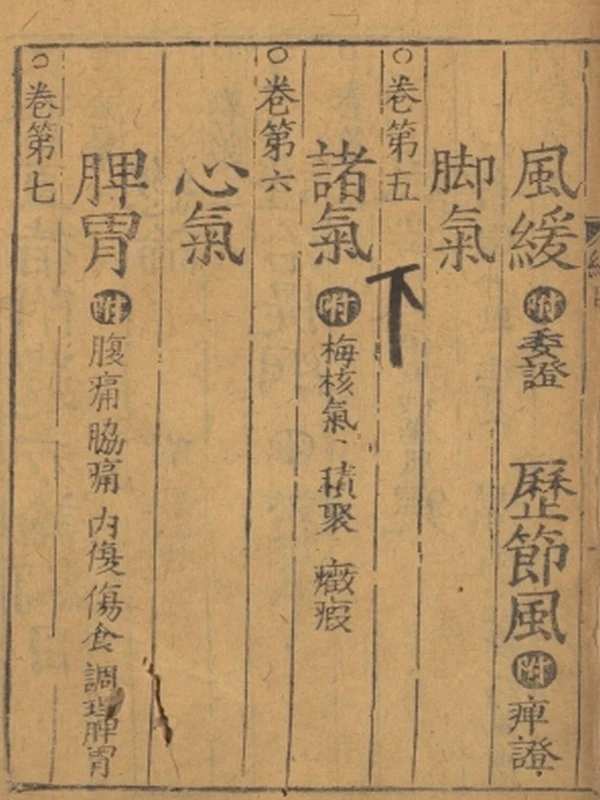 風緩 附 委證 歷節風 附 痺證
脚氣
○卷第五
下
諸氣 附 梅核氣、積聚 癥瘕
○卷第六
心氣
脾胃 附 腹痛 脇痛 内傷 傷食 調理脾胃
○卷第七